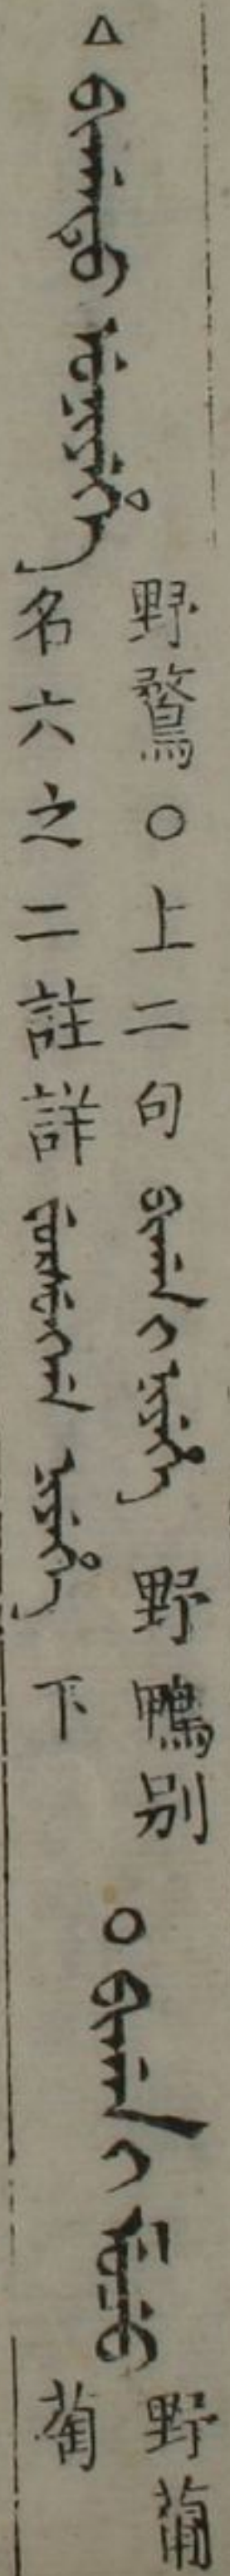 △ ᠪᡳᡤᠠᡨᡠ ᠨᡳᠶᡝᡥᡝ᠈
野鶩○上二句 ᠪᡳᡤᠠᠨ ᡳ ᠨᡳᠶᡝᡥᡝ 野鴨別
名六之二註詳 ᡨᠠᡵᠮᡳᠨ ᠨᡳᠶᡝᡥᡝ 下
○ ᠪᡳᡤᠠᠨ ᡳ ᠮᡠᠴᡠ
野葡
萄